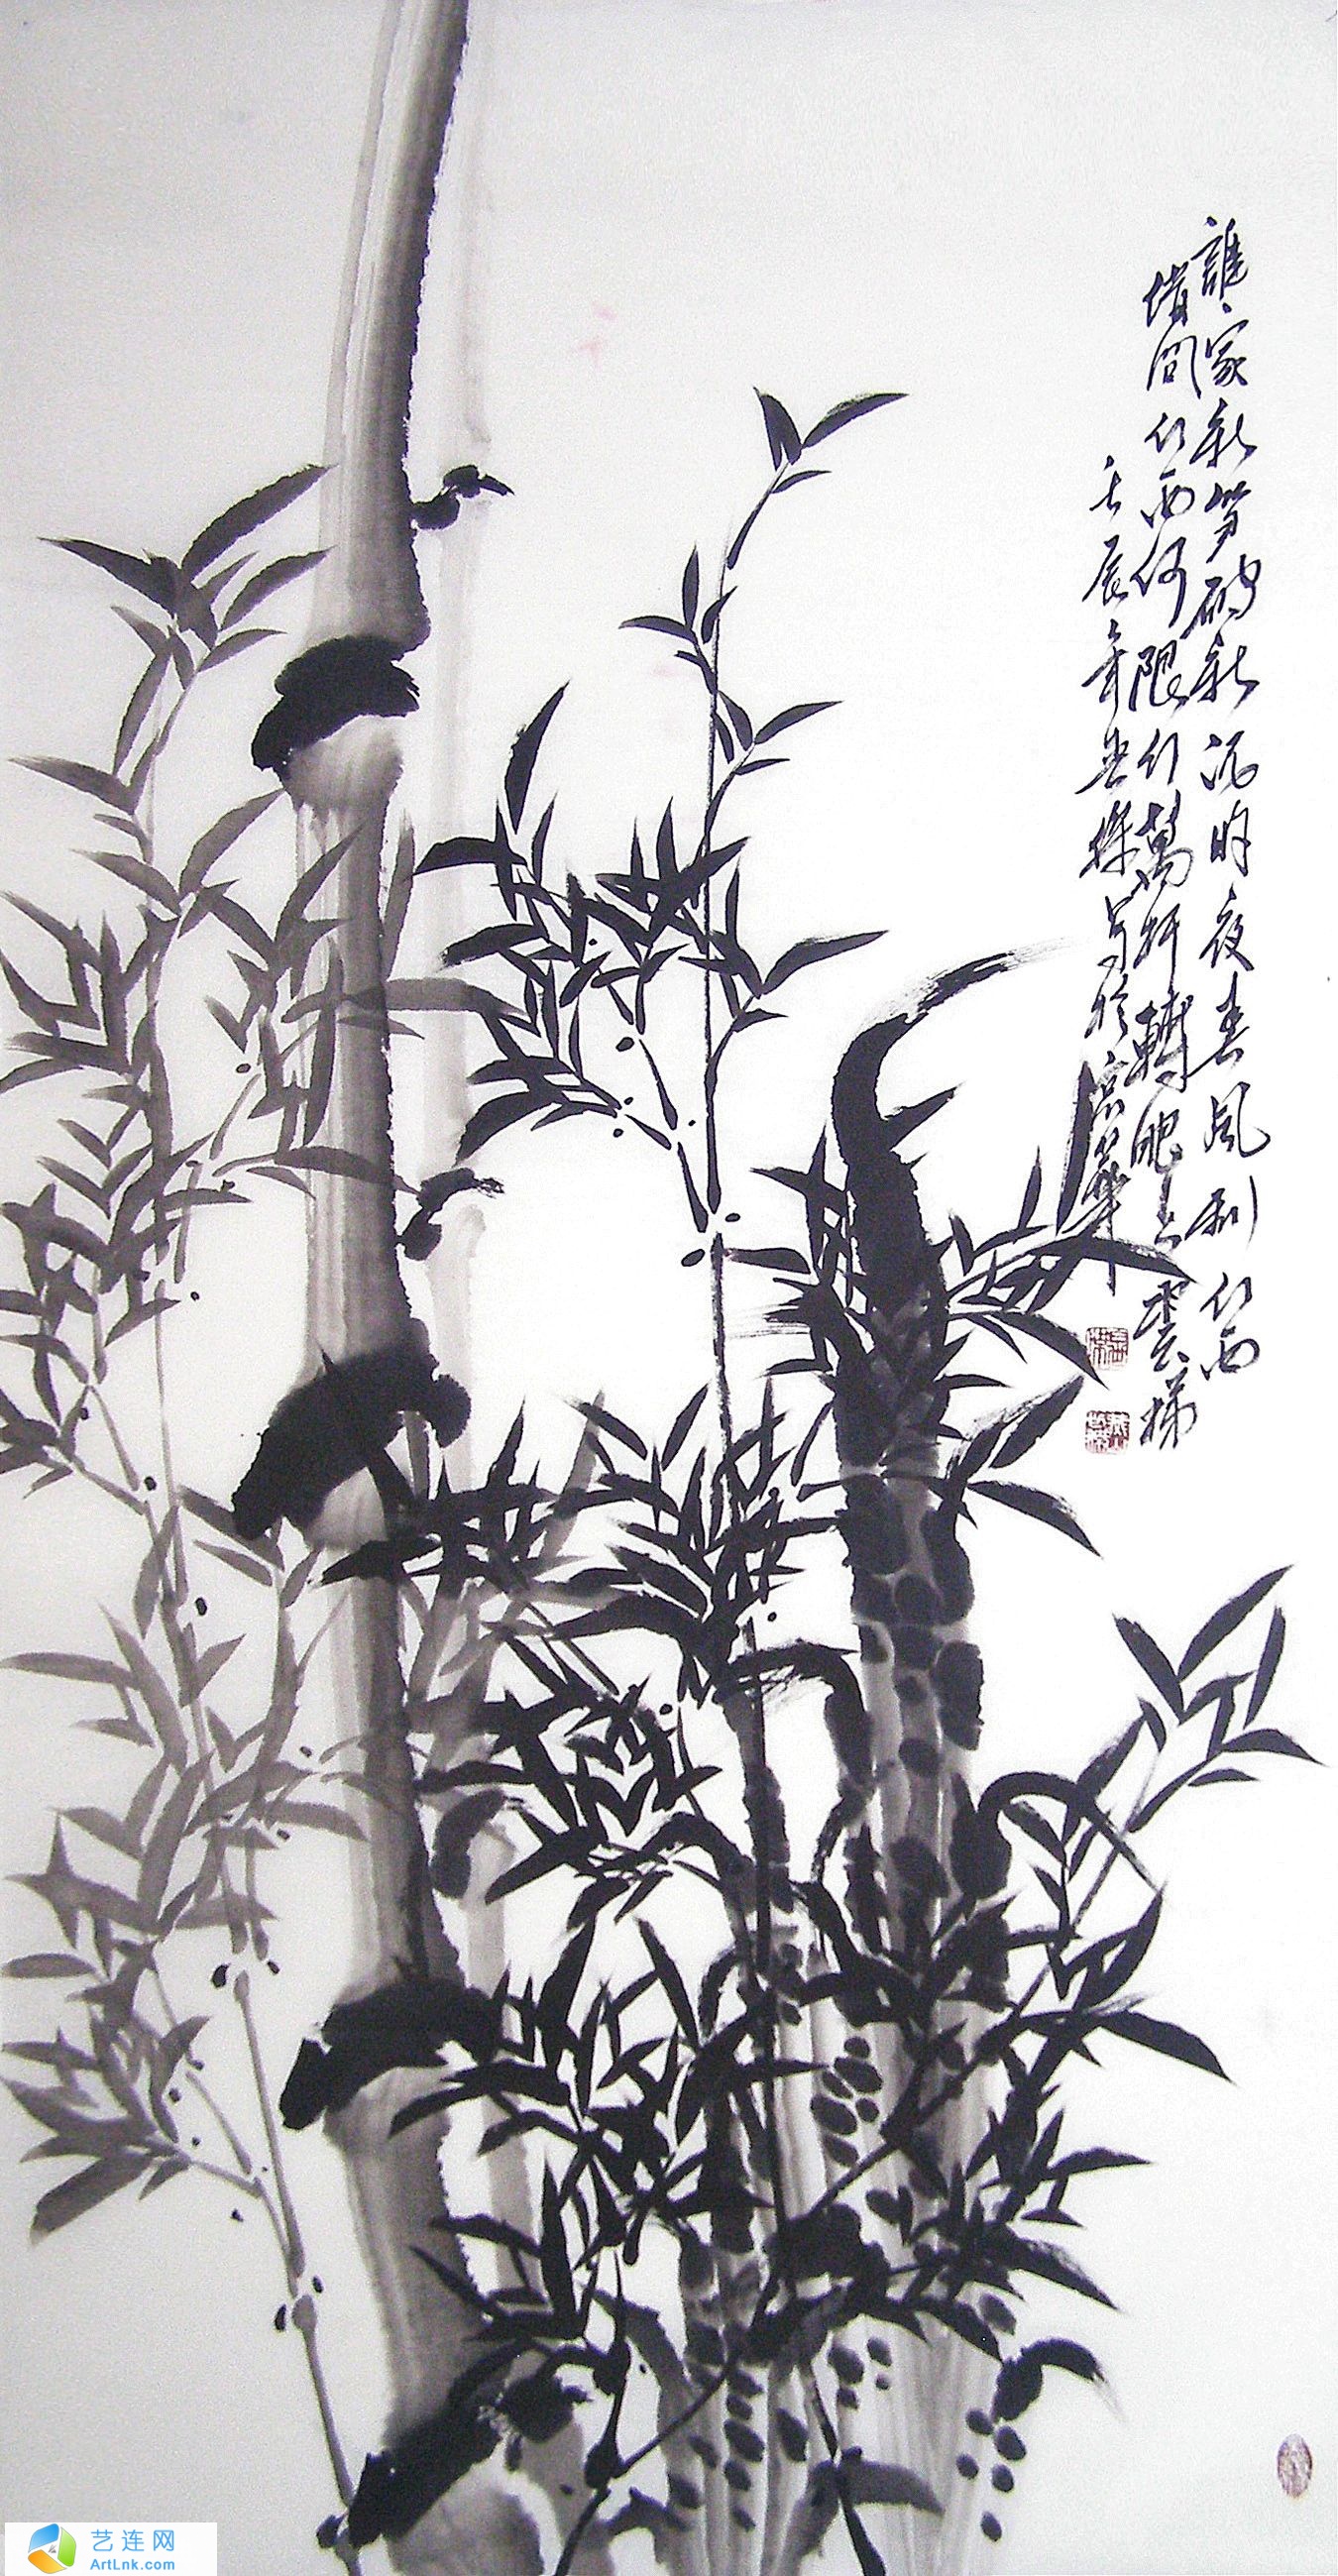 誰家新笋破新泥昨夜春風到竹西
借問竹西何限竹萬竿轉眼上雲梯
壬辰年 寫於京華
艺连网
ArtLnk.com